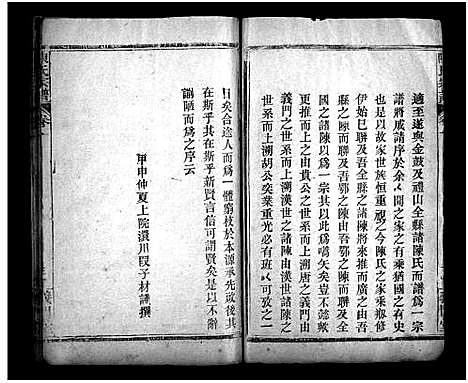 適至遂與金鼓及禮山全縣諸陳氏而譜爲一宗
譜將成請序於余余聞之家之有乘猶國之有史
也是以故家世族恒重視之今陳氏之家乘剏修
伊始已聯及吾全縣之諸陳將來推而廣之由吾
縣之陳而聯及吾鄂之陳由吾鄂之陳而聯及全
國之諸陳以爲一宗其以此爲嚆矢矣豈不懿歟
義門之陳由之上而由貴公之世系而上溯唐之
義門之世系而上溯漢世之諸陳由漢世諸陳之
世系而上溯胡公奕葉重光必有班班可攷之一
日矣合途人而爲一體窮枝於本源承先啟後其
在斯乎其在斯乎新賢言信可謂賢矣是以不辭
譾陋而爲之序云
甲申仲夏上院澴川段子材謹撰
陳氏宗譜